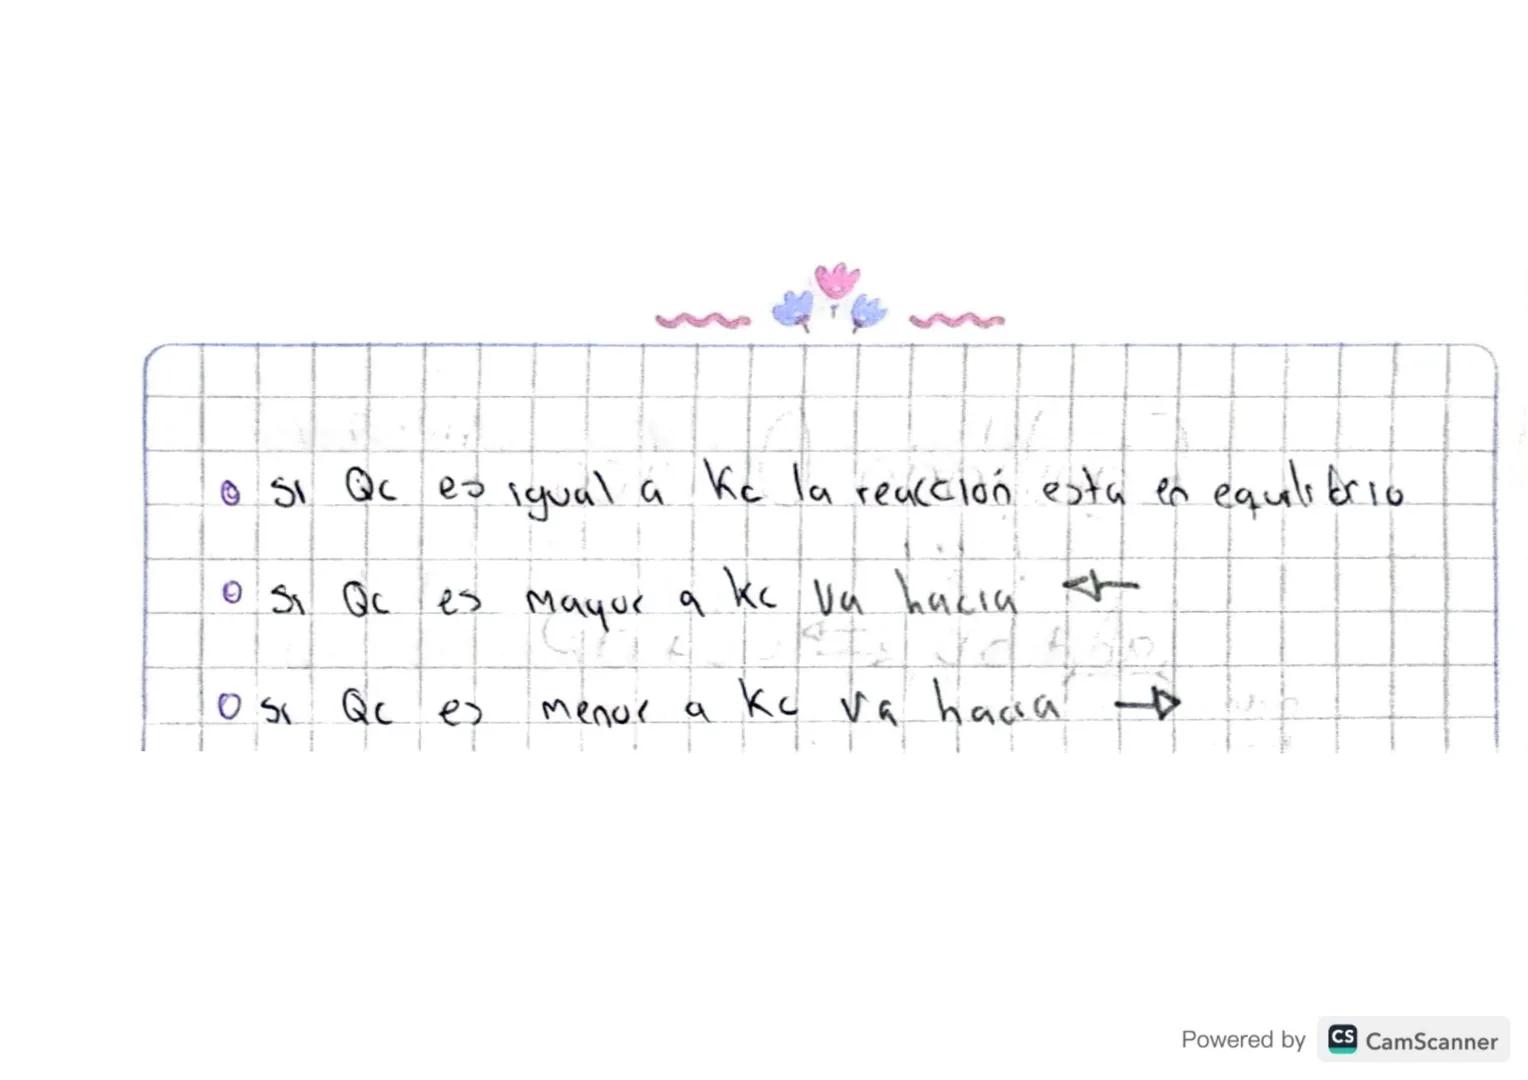 Si Qc es igual a Kc la reacción esta en equilibrio
Si Qc es mayor a Kc va hacia ←
Si Qc es menor a Kc va hacia →
Powered by CS CamScanner